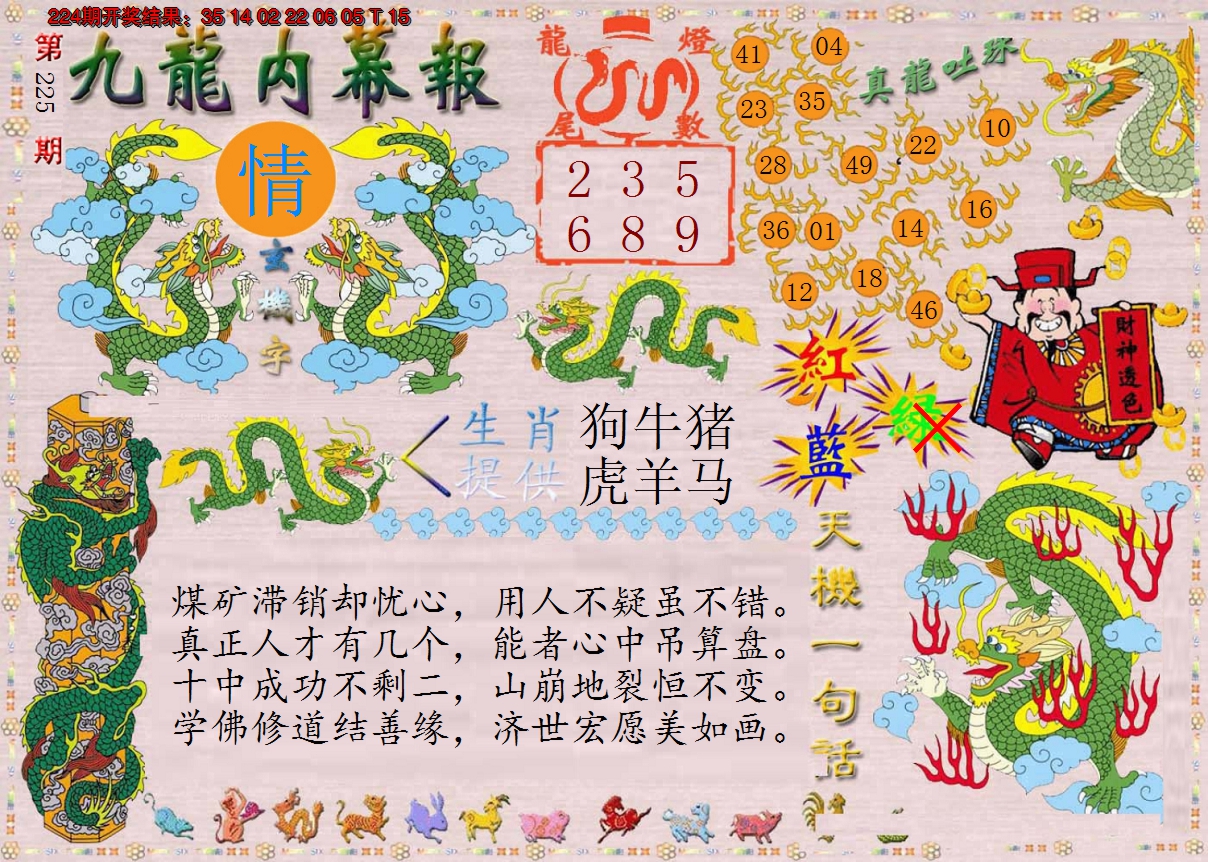 224期开奖结果：35 14 02 22 06 05 T 15
第225期
九龍内幕報
情
玄機字
龍燈
尾數
2 3 5
6 8 9
真龍吐珠
41
04
23
35
28
49
22
10
36
01
14
16
12
18
46
財神透色
紅
綠
藍
生肖
提供
狗牛猪
虎羊马
天機一句话
煤矿滞销却忧心，用人不疑虽不错。
真正人才有几个，能者心中吊算盘。
十中成功不剩二，山崩地裂恒不变。
学佛修道结善缘，济世宏愿美如画。